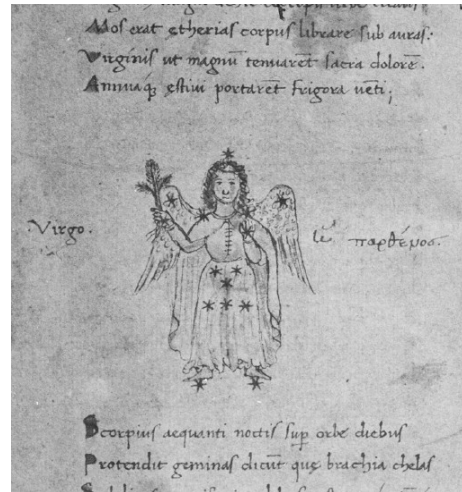 Mos erat etherias corpus librare sub auras:
Virginis ut magnū tenuarēt sacra dolorē.
Annuaq; estiui portarēt frigora uēti;
Virgo. παρθένος.
Scorpius aequanti noctis sup orbe diebus
Protendit geminas dicūt quę brachia chelas